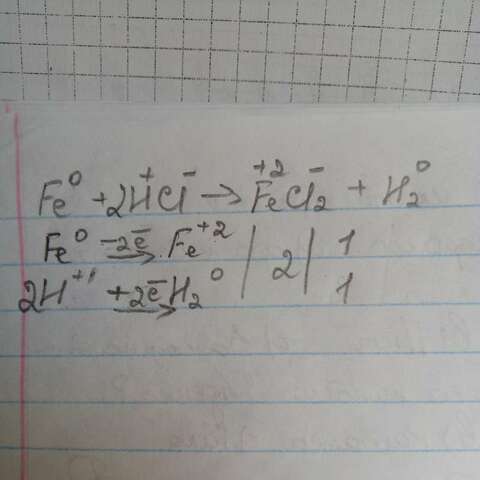 Fe⁰ + 2H⁺Cl⁻ → Fe⁺²Cl₂⁻ + H₂⁰
Fe⁰ −2ē → Fe⁺² | 2 | 1
2H⁺¹ +2ē → H₂⁰ | | 1